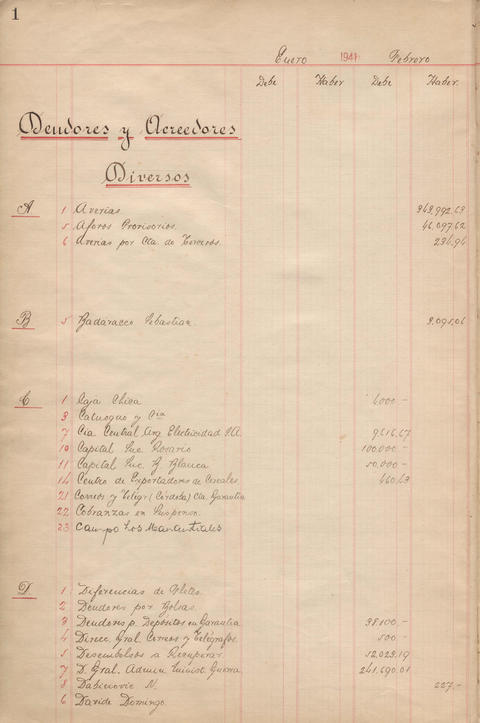 1
Enero 1941 Febrero
Debe Haber Debe Haber
Deudores y Acreedores
Diversos
A 1 Averias 949.992.63
5 Aforos Provisorios. 46.097.62
6 Averias por Cta. de Terceros. 234.94
B 5 Badaracco Sebastian 9.095.06
C 1 Caja Chica 6000.-
3 Catuogno y Cia
7 Cia Central Arg. Electricidad S.A. 9.616.67
10 Capital Suc. Rosario 100.000.-
11 Capital Suc. B. Blanca 50.000.-
14 Centro de Exportadores de Cereales. 460.63
21 Correos y Telegr. (Córdoba) Cta. Garantia
22 Cobranzas en Suspenso.
23 Campo Los Manantiales
D 1 Diferencias de Fletes.
2 Deudores por Bolsas.
3 Deudores p. Depósitos en Garantia 38100.-
4 Direc. Gral. Correos y Telégrafos. 500.-
5 Desembolsos a Recuperar. 52.023.19
7 D. Gral. Admin. Minist. Guerra. 241.690.01
8 Dabinovic N. 227.-
6 Davide Domingo.